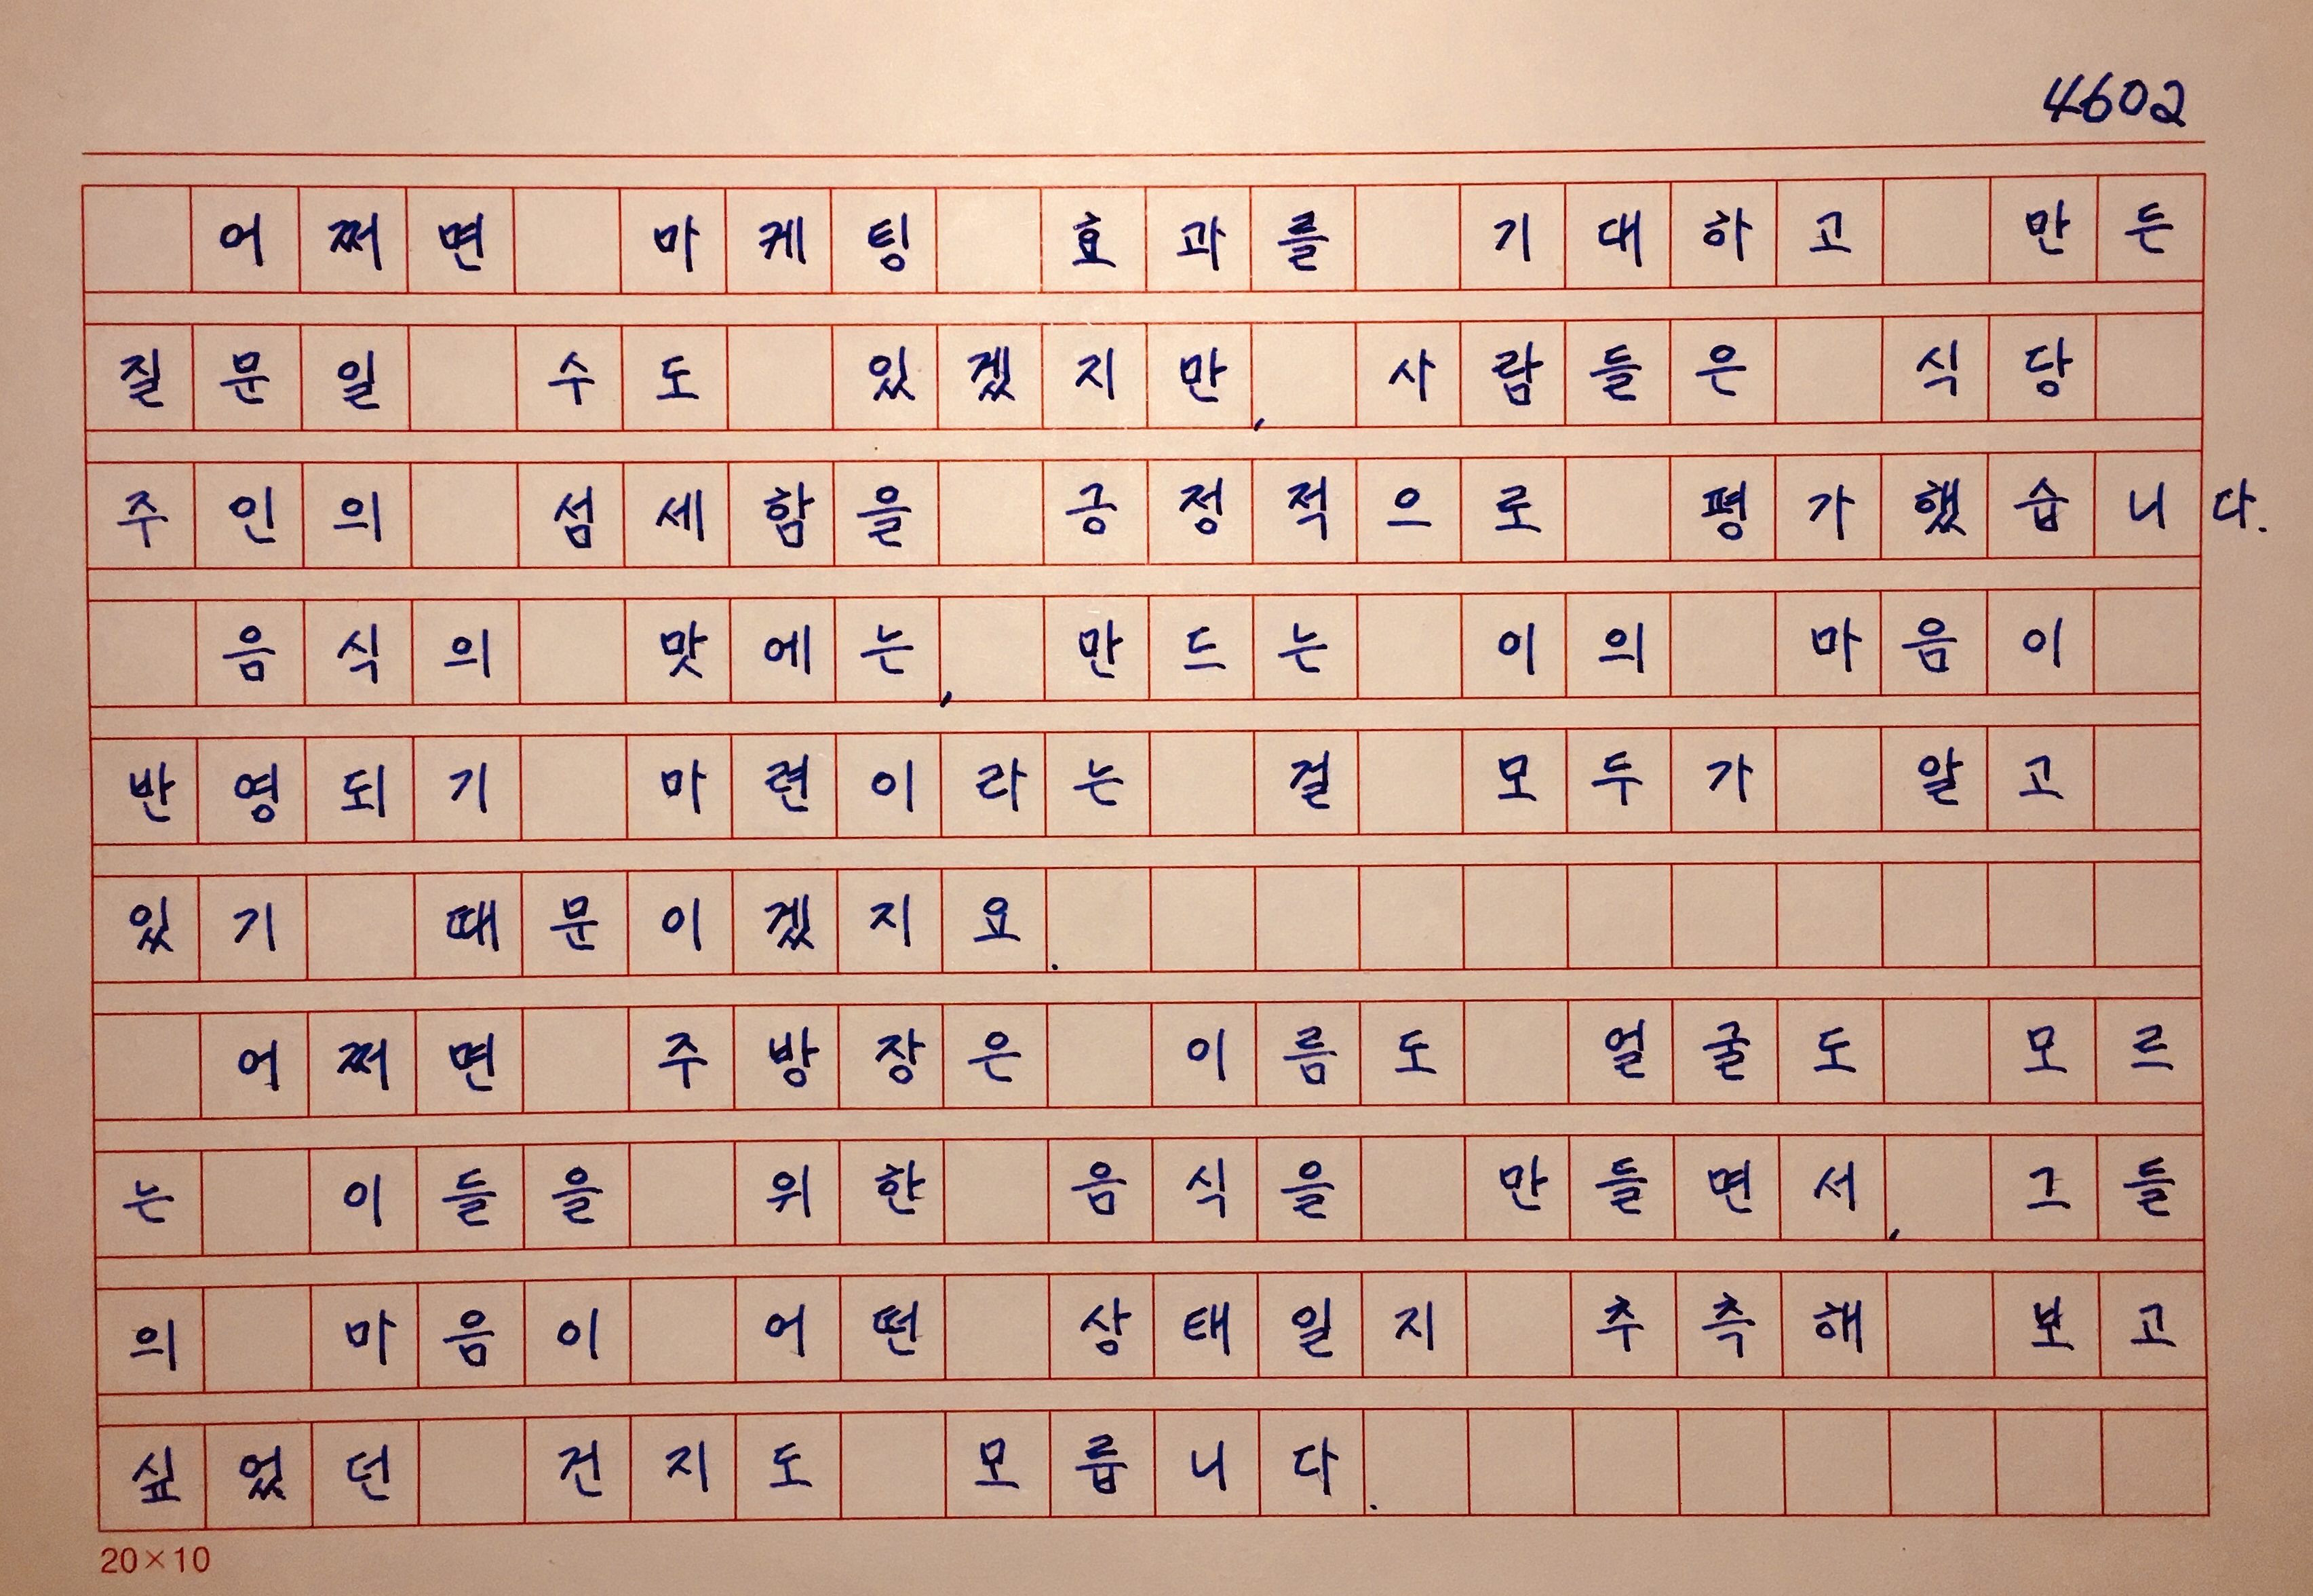 4602
어쩌면 마케팅 효과를 기대하고 만든
질문일 수도 있겠지만, 사람들은 식당
주인의 섬세함을 긍정적으로 평가했습니다.
음식의 맛에는, 만드는 이의 마음이
반영되기 마련이라는 걸 모두가 알고
있기 때문이겠지요.
어쩌면 주방장은 이름도 얼굴도 모르
는 이들을 위한 음식을 만들면서, 그들
의 마음이 어떤 상태일지 추측해 보고
싶었던 건지도 모릅니다.
20×10